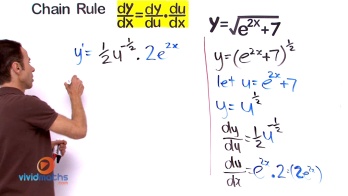 Chain Rule dy/dx = dy/du · du/dx
y' = 1/2 u^(-1/2) · 2e^(2x)
y = √(e^(2x)+7)
y = (e^(2x)+7)^(1/2)
let u = e^(2x)+7
y = u^(1/2)
dy/du = 1/2 u^(-1/2)
du/dx = e^(2x) · 2 = (2e^(2x))
vividmaths
.com